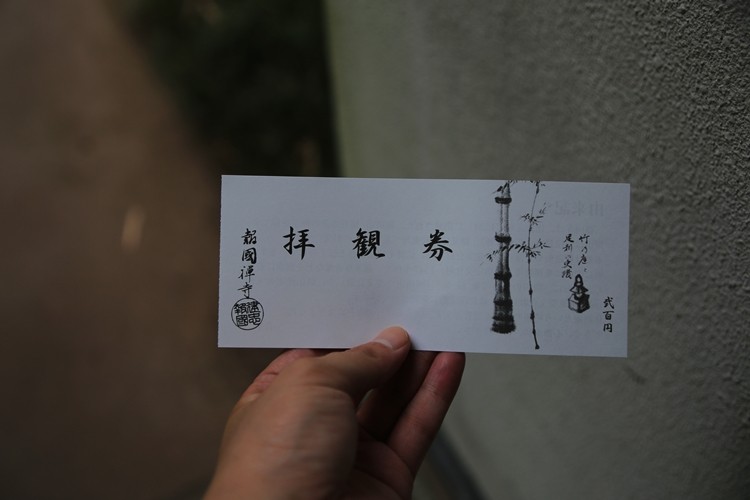 拝観券
竹の庭、
足利の史蹟
弐百円
報國禅寺